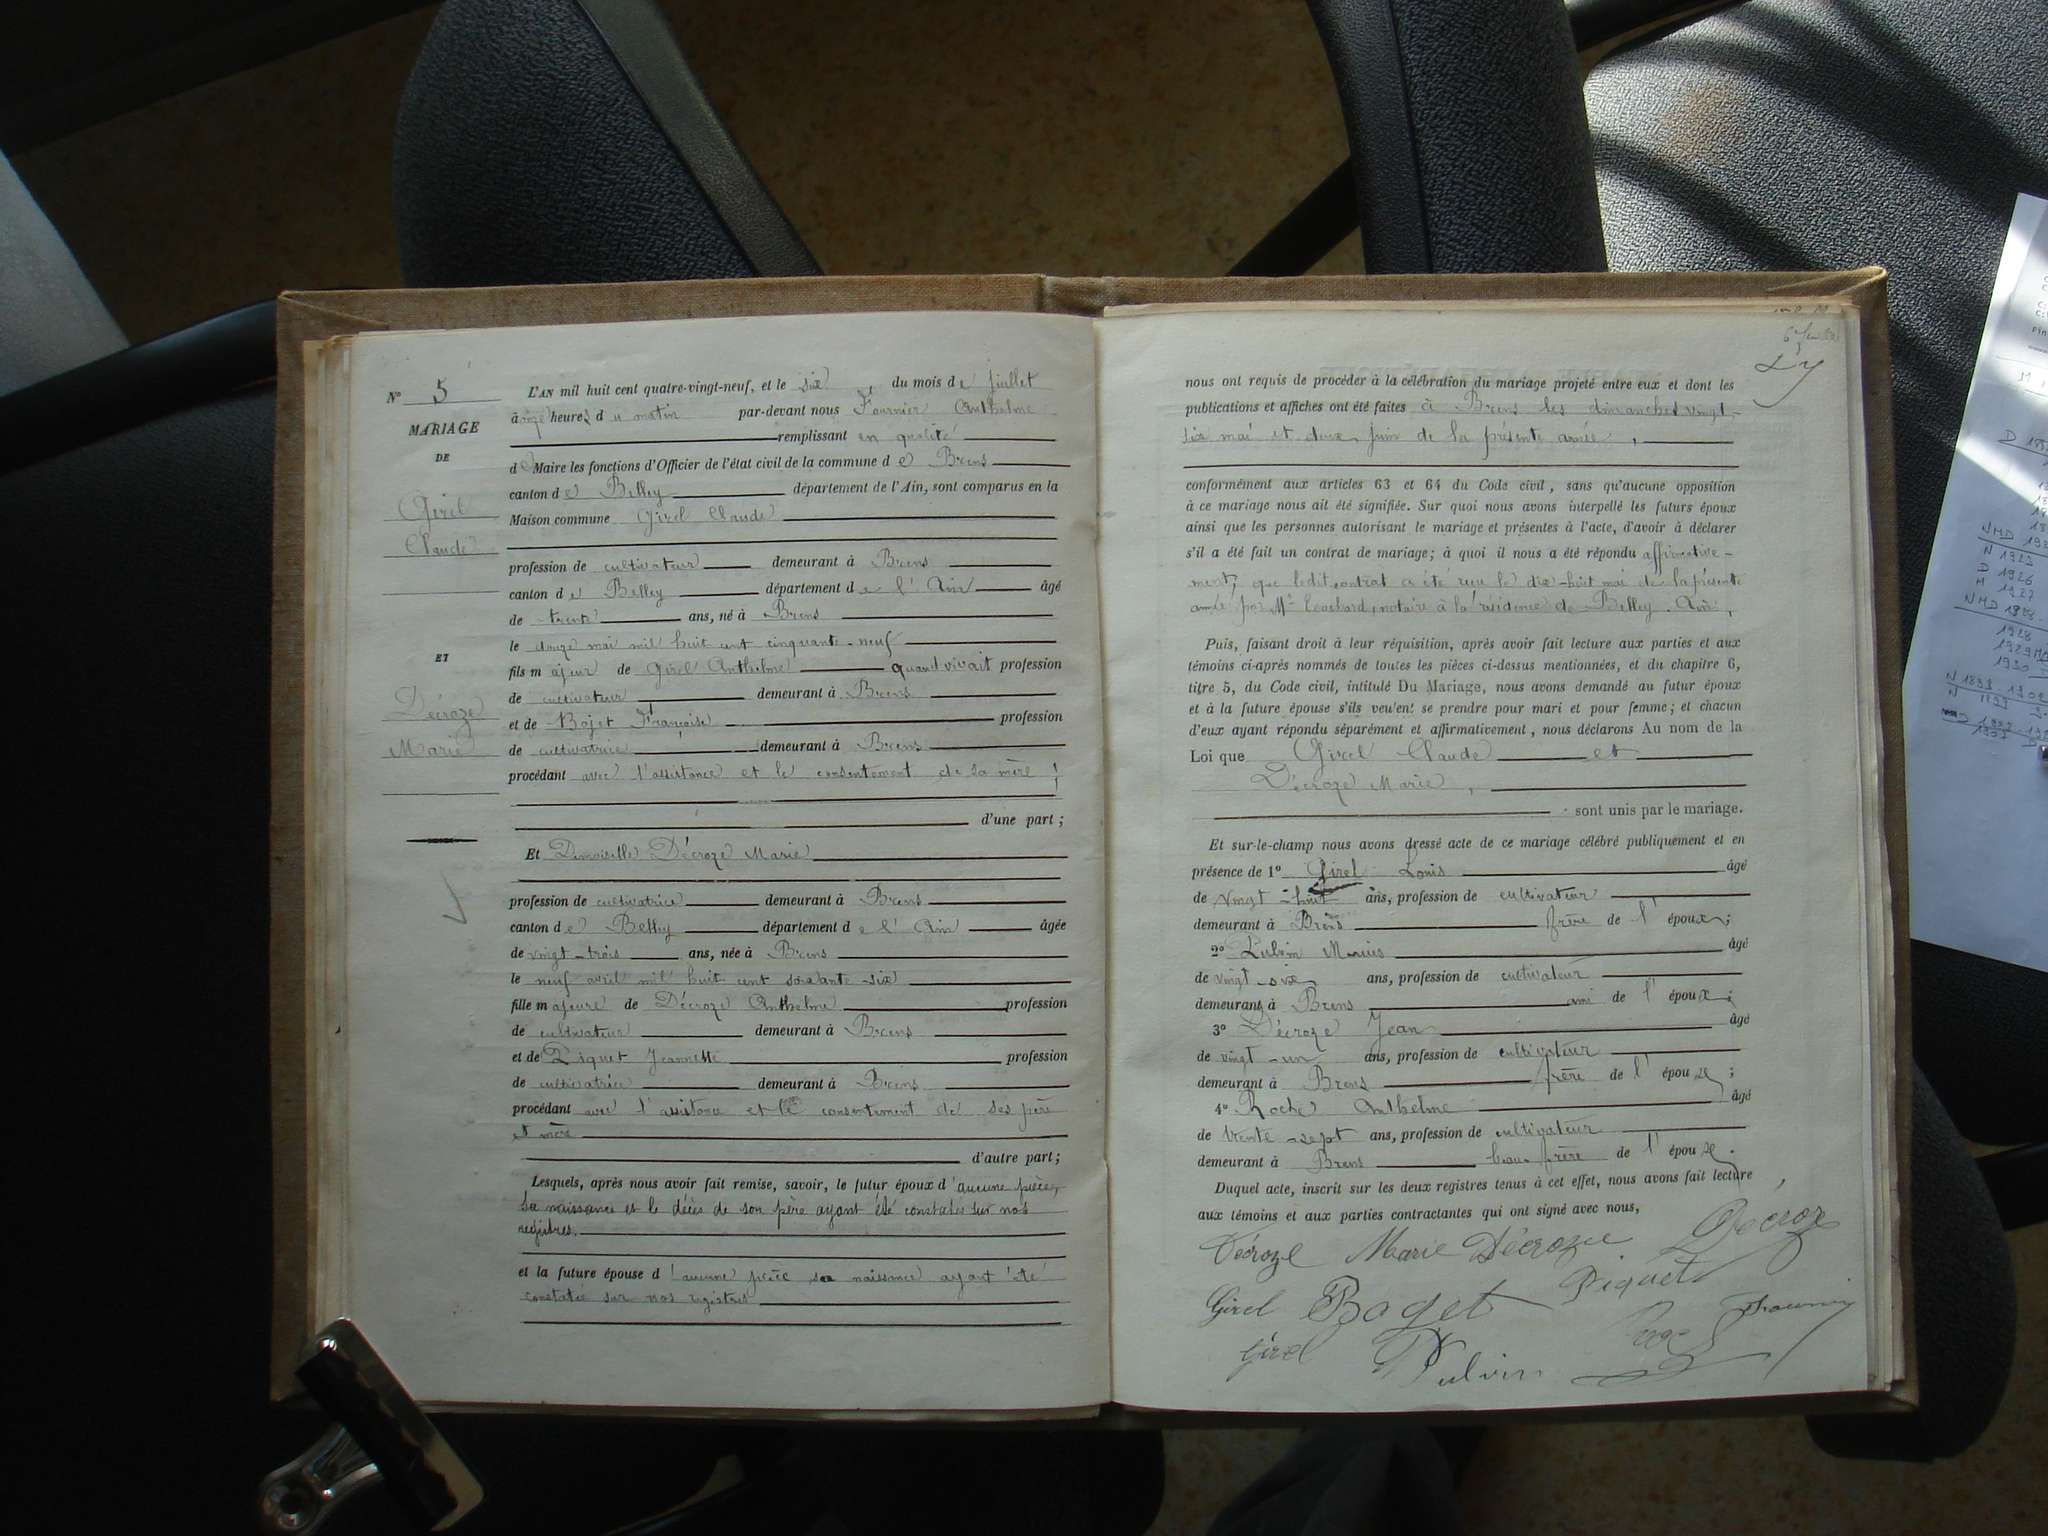 N° 5
MARIAGE
DE
Girel
Claude
ET
Décroze
Marie
L'AN mil huit cent quatre-vingt-neuf, et le six du mois de juillet
à onze heures du matin par-devant nous Fournier Anthelme
remplissant en qualité
de Maire les fonctions d'Officier de l'état civil de la commune de Brens
canton de Belley département de l'Ain, sont comparus en la
Maison commune Girel Claude
profession de cultivateur demeurant à Brens
canton de Belley département de l'Ain âgé
de trente ans, né à Brens
le douze mai mil huit cent cinquante-neuf
fils majeur de Girel Anthelme quand vivait profession
de cultivateur demeurant à Brens
et de Bojet Française profession
de cultivatrice demeurant à Brens
procédant avec l'assistance et le consentement de sa mère
d'une part ;
Et Demoiselle Décroze Marie
profession de cultivatrice demeurant à Brens
canton de Belley département de l'Ain âgée
de vingt-trois ans, née à Brens
le neuf avril mil huit cent soixante-six
fille majeure de Décroze Anthelme profession
de cultivateur demeurant à Brens
et de Piquet Jeannette profession
de cultivatrice demeurant à Brens
procédant avec l'assistance et le consentement de ses père
et mère
d'autre part ;
Lesquels, après nous avoir fait remise, savoir, le futur époux d'aucune pièce,
sa naissance et le décès de son père ayant été constatés sur nos
registres.
et la future épouse d'aucune pièce sa naissance ayant été
constatée sur nos registres
nous ont requis de procéder à la célébration du mariage projeté entre eux et dont les
publications et affiches ont été faites à Brens les dimanches vingt-
six mai et deux juin de la présente année,
conformément aux articles 63 et 64 du Code civil, sans qu'aucune opposition
à ce mariage nous ait été signifiée. Sur quoi nous avons interpellé les futurs époux
ainsi que les personnes autorisant le mariage et présentes à l'acte, d'avoir à déclarer
s'il a été fait un contrat de mariage ; à quoi il nous a été répondu affirmative-
ment, que ledit contrat a été reçu le dix-huit mai de la présente
année par Me notaire à la résidence de Belley. Ain,
Puis, faisant droit à leur réquisition, après avoir fait lecture aux parties et aux
témoins ci-après nommés de toutes les pièces ci-dessus mentionnées, et du chapitre 6,
titre 5, du Code civil, intitulé Du Mariage, nous avons demandé au futur époux
et à la future épouse s'ils veulent se prendre pour mari et pour femme ; et chacun
d'eux ayant répondu séparément et affirmativement, nous déclarons Au nom de la
Loi que Girel Claude et
Décroze Marie,
sont unis par le mariage.
Et sur-le-champ nous avons dressé acte de ce mariage célébré publiquement et en
présence de 1° Girel Louis âgé
de vingt-huit ans, profession de cultivateur
demeurant à Brens frère de l'époux ;
2° Pulvin Marius âgé
de vingt-six ans, profession de cultivateur
demeurant à Brens ami de l'époux ;
3° Décroze Jean âgé
de vingt-un ans, profession de cultivateur
demeurant à Brens frère de l'épouse ;
4° Roche Anthelme âgé
de trente-sept ans, profession de cultivateur
demeurant à Brens beau-frère de l'épouse.
Duquel acte, inscrit sur les deux registres tenus à cet effet, nous avons fait lecture
aux témoins et aux parties contractantes qui ont signé avec nous,
Décroze Marie Décroze Décroze
Girel Boget Piquet
Girel Pulvin
N 1923
D 1926
N 1927
NMD 1928
1928
1930